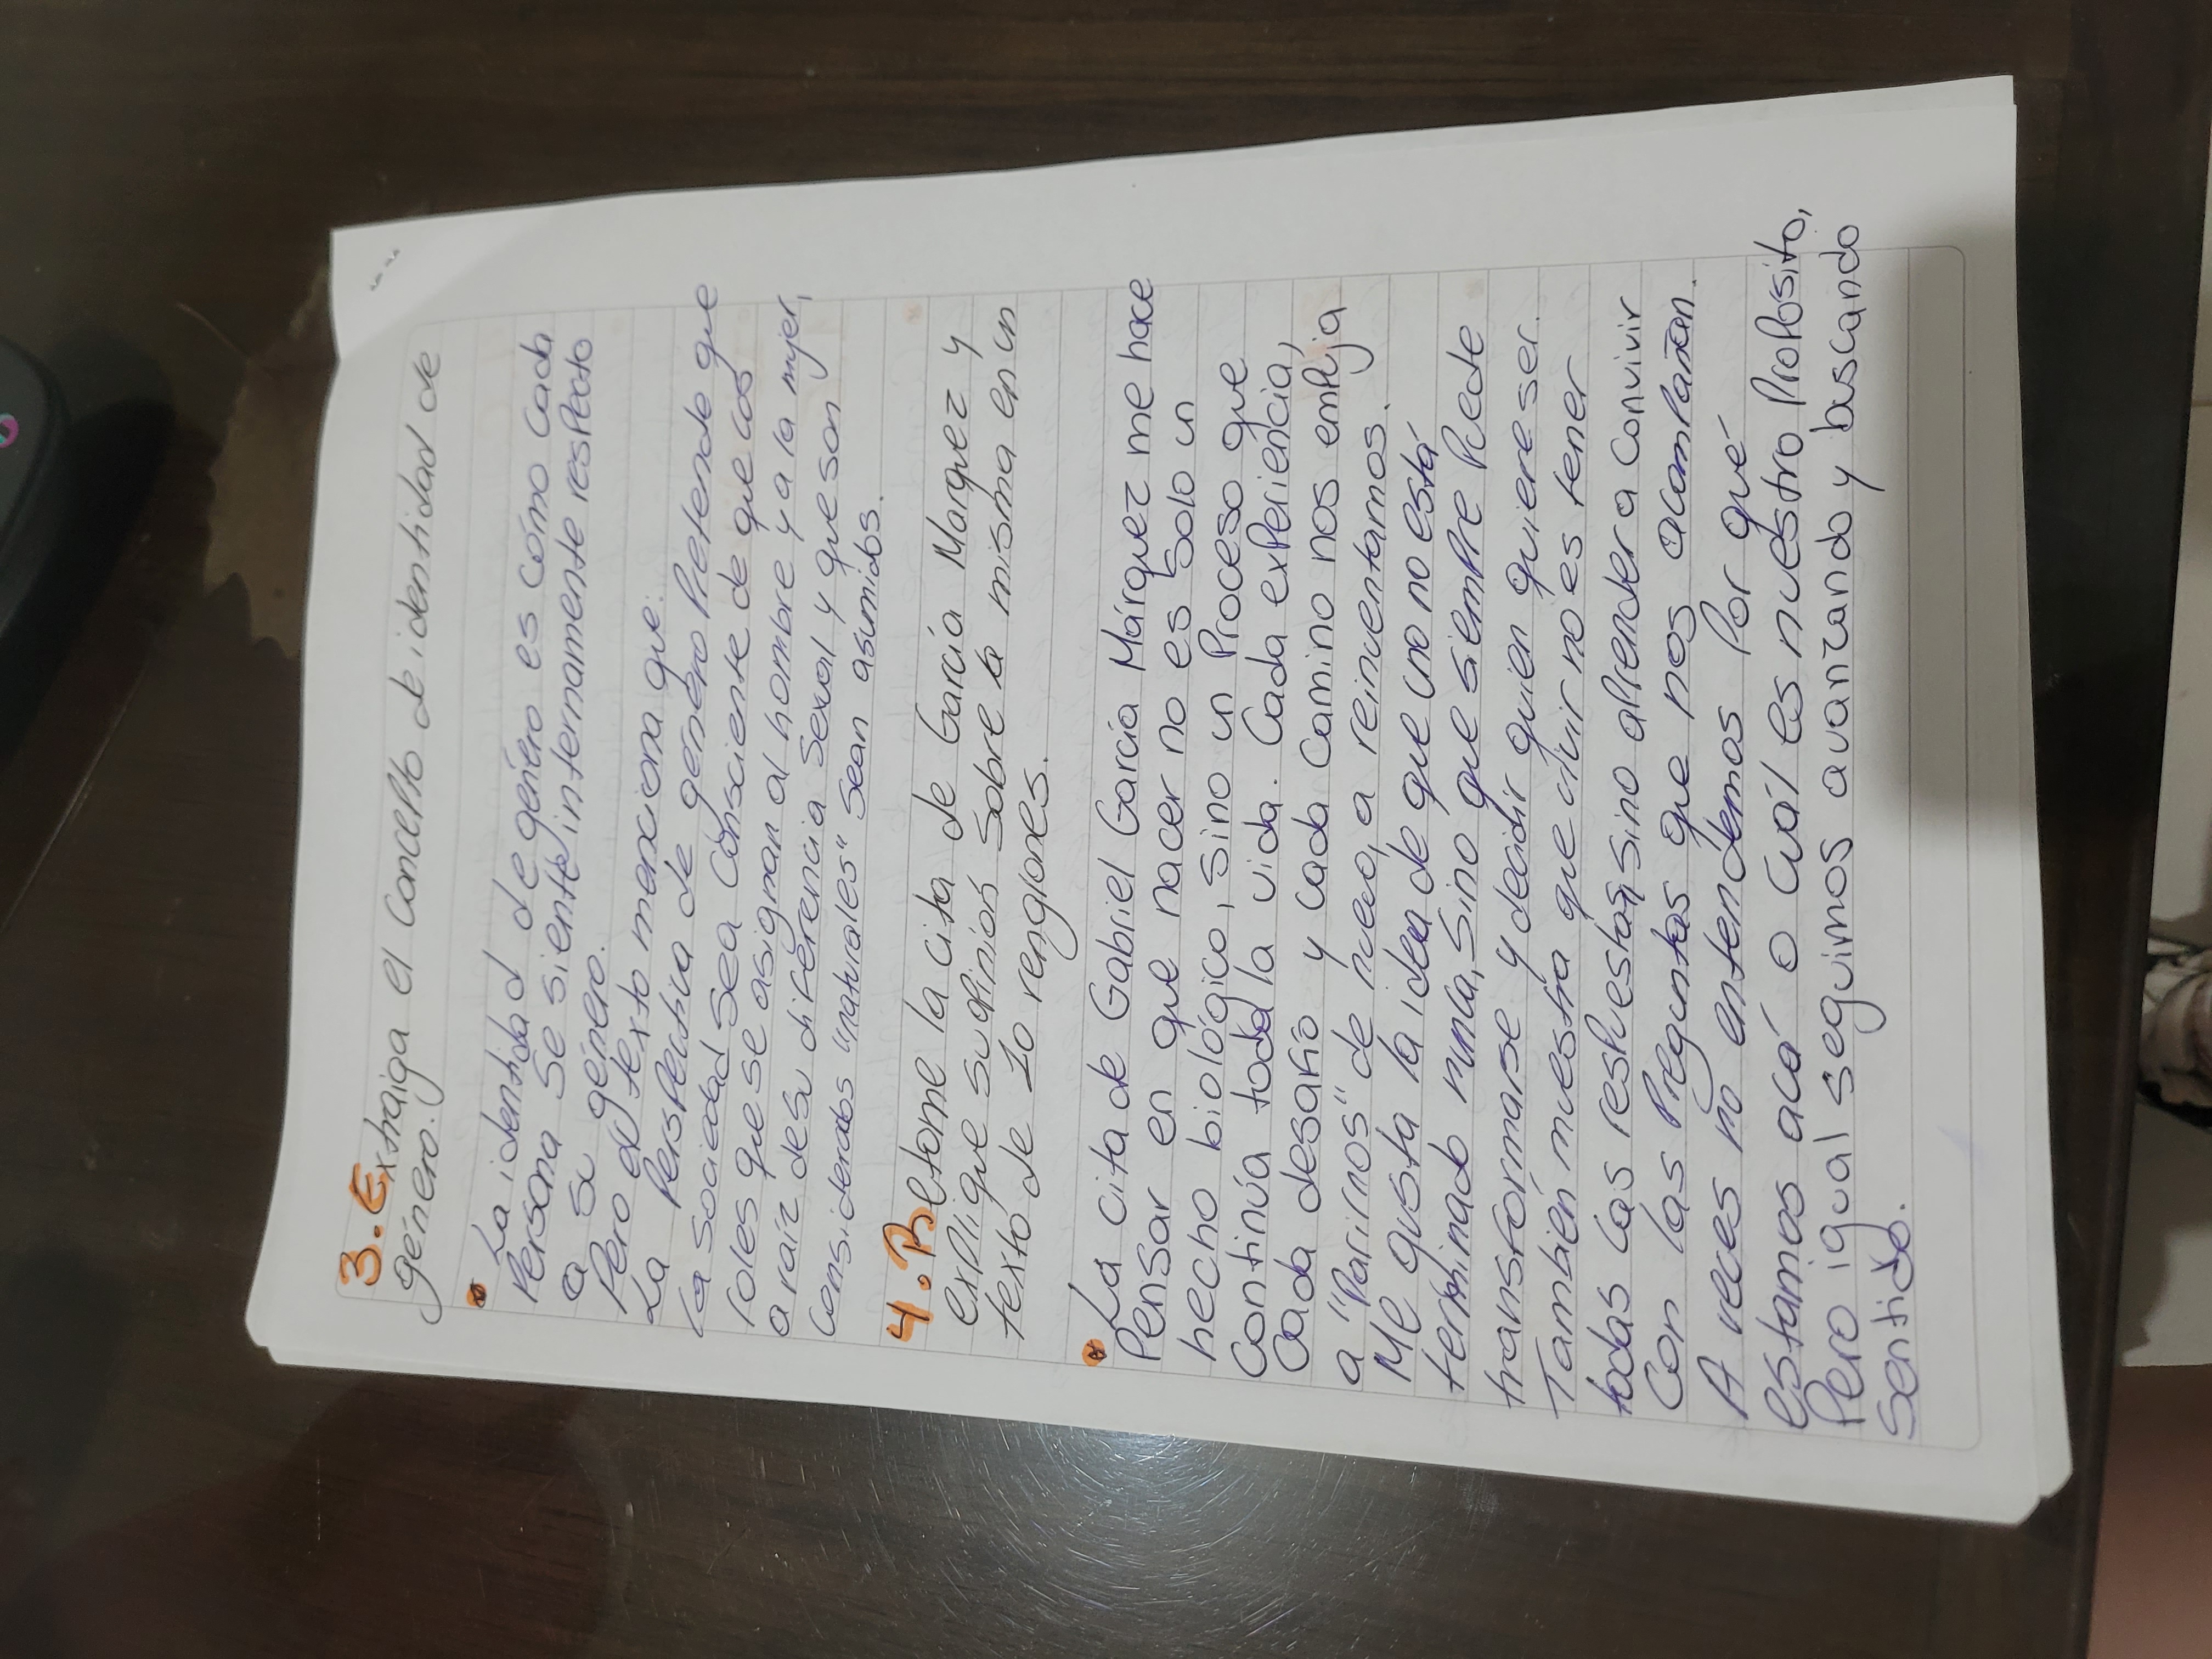 3. Extraiga el Concepto de identidad de
género.
La identidad de género es cómo cada
Persona se siente internamente respecto
a su género.
Pero el texto menciona que:
La Perspectiva de género Pretende que
la sociedad sea Consciente de que los
roles que se asignan al hombre y a la mujer,
a raíz de su diferencia sexual y que son
Considerados "naturales" sean asumidos.
4. Retome la cita de García Marquez y
explique su opinión sobre la misma en un
texto de 10 renglones.
La cita de Gabriel García Márquez me hace
Pensar en que nacer no es solo un
hecho biológico, sino un Proceso que
Continúa toda la vida. Cada experiencia,
Cada desafío y cada Camino nos empuja
a "Parirnos" de nuevo, a reinventarnos.
Me gusta la idea de que uno no está
terminado nunca, sino que siempre Puede
transformarse y decidir quien quiere ser.
También muestra que vivir no es tener
todas las respuestas, sino aprender a convivir
Con las Preguntas que nos acompañan.
A veces no entendemos Por qué
estamos acá o cuál es nuestro Propósito,
Pero igual seguimos avanzando y buscando
Sentido.